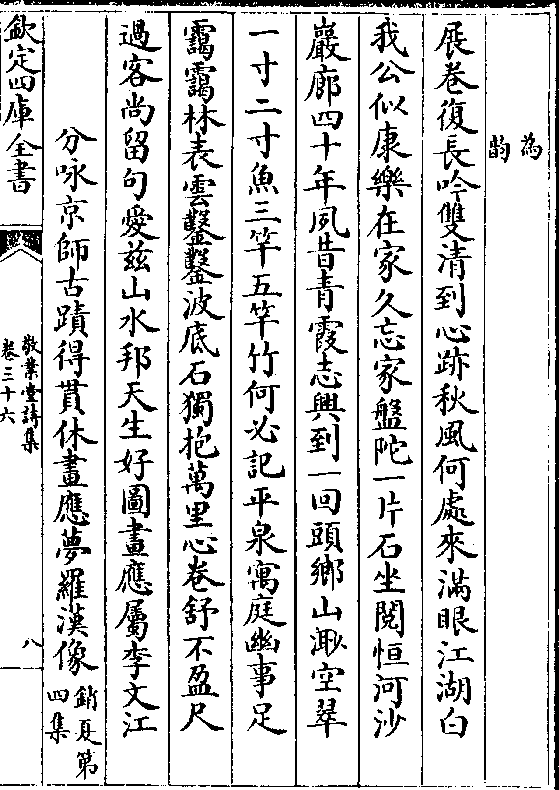 為
韵
展卷復長吟雙清到心跡秋風何處來滿眼江湖白
我公似康樂在家久忘家盤陀一片石坐閱恒河沙
巖廊四十年夙昔青霞志興到一回頭鄉山漱空翠
一寸二寸魚三竿五竿竹何必記平泉寓庭幽事足
靄靄林表雲鑿鑿波底石獨抱萬里心卷舒不盈尺
過客尚留句愛兹山水邦天生好圖畫應屬李文江
分咏京師古蹟得貫休畫應夢羅漢像
銷夏第
四集
欽定四庫全書
敬業堂詩集
卷三十六
八